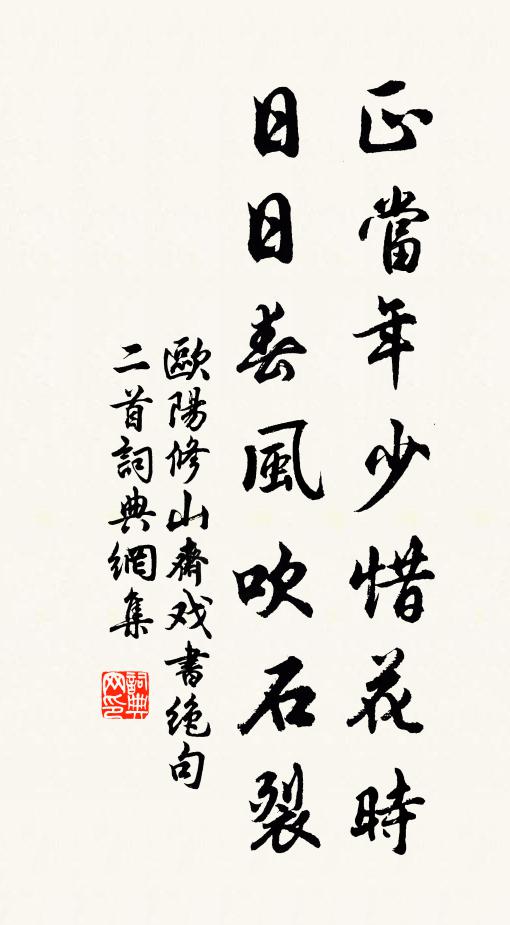 正當年少惜花時
日日春風吹石裂
歐陽修山齋戏書绝句
二首詞典網集
詞典網印